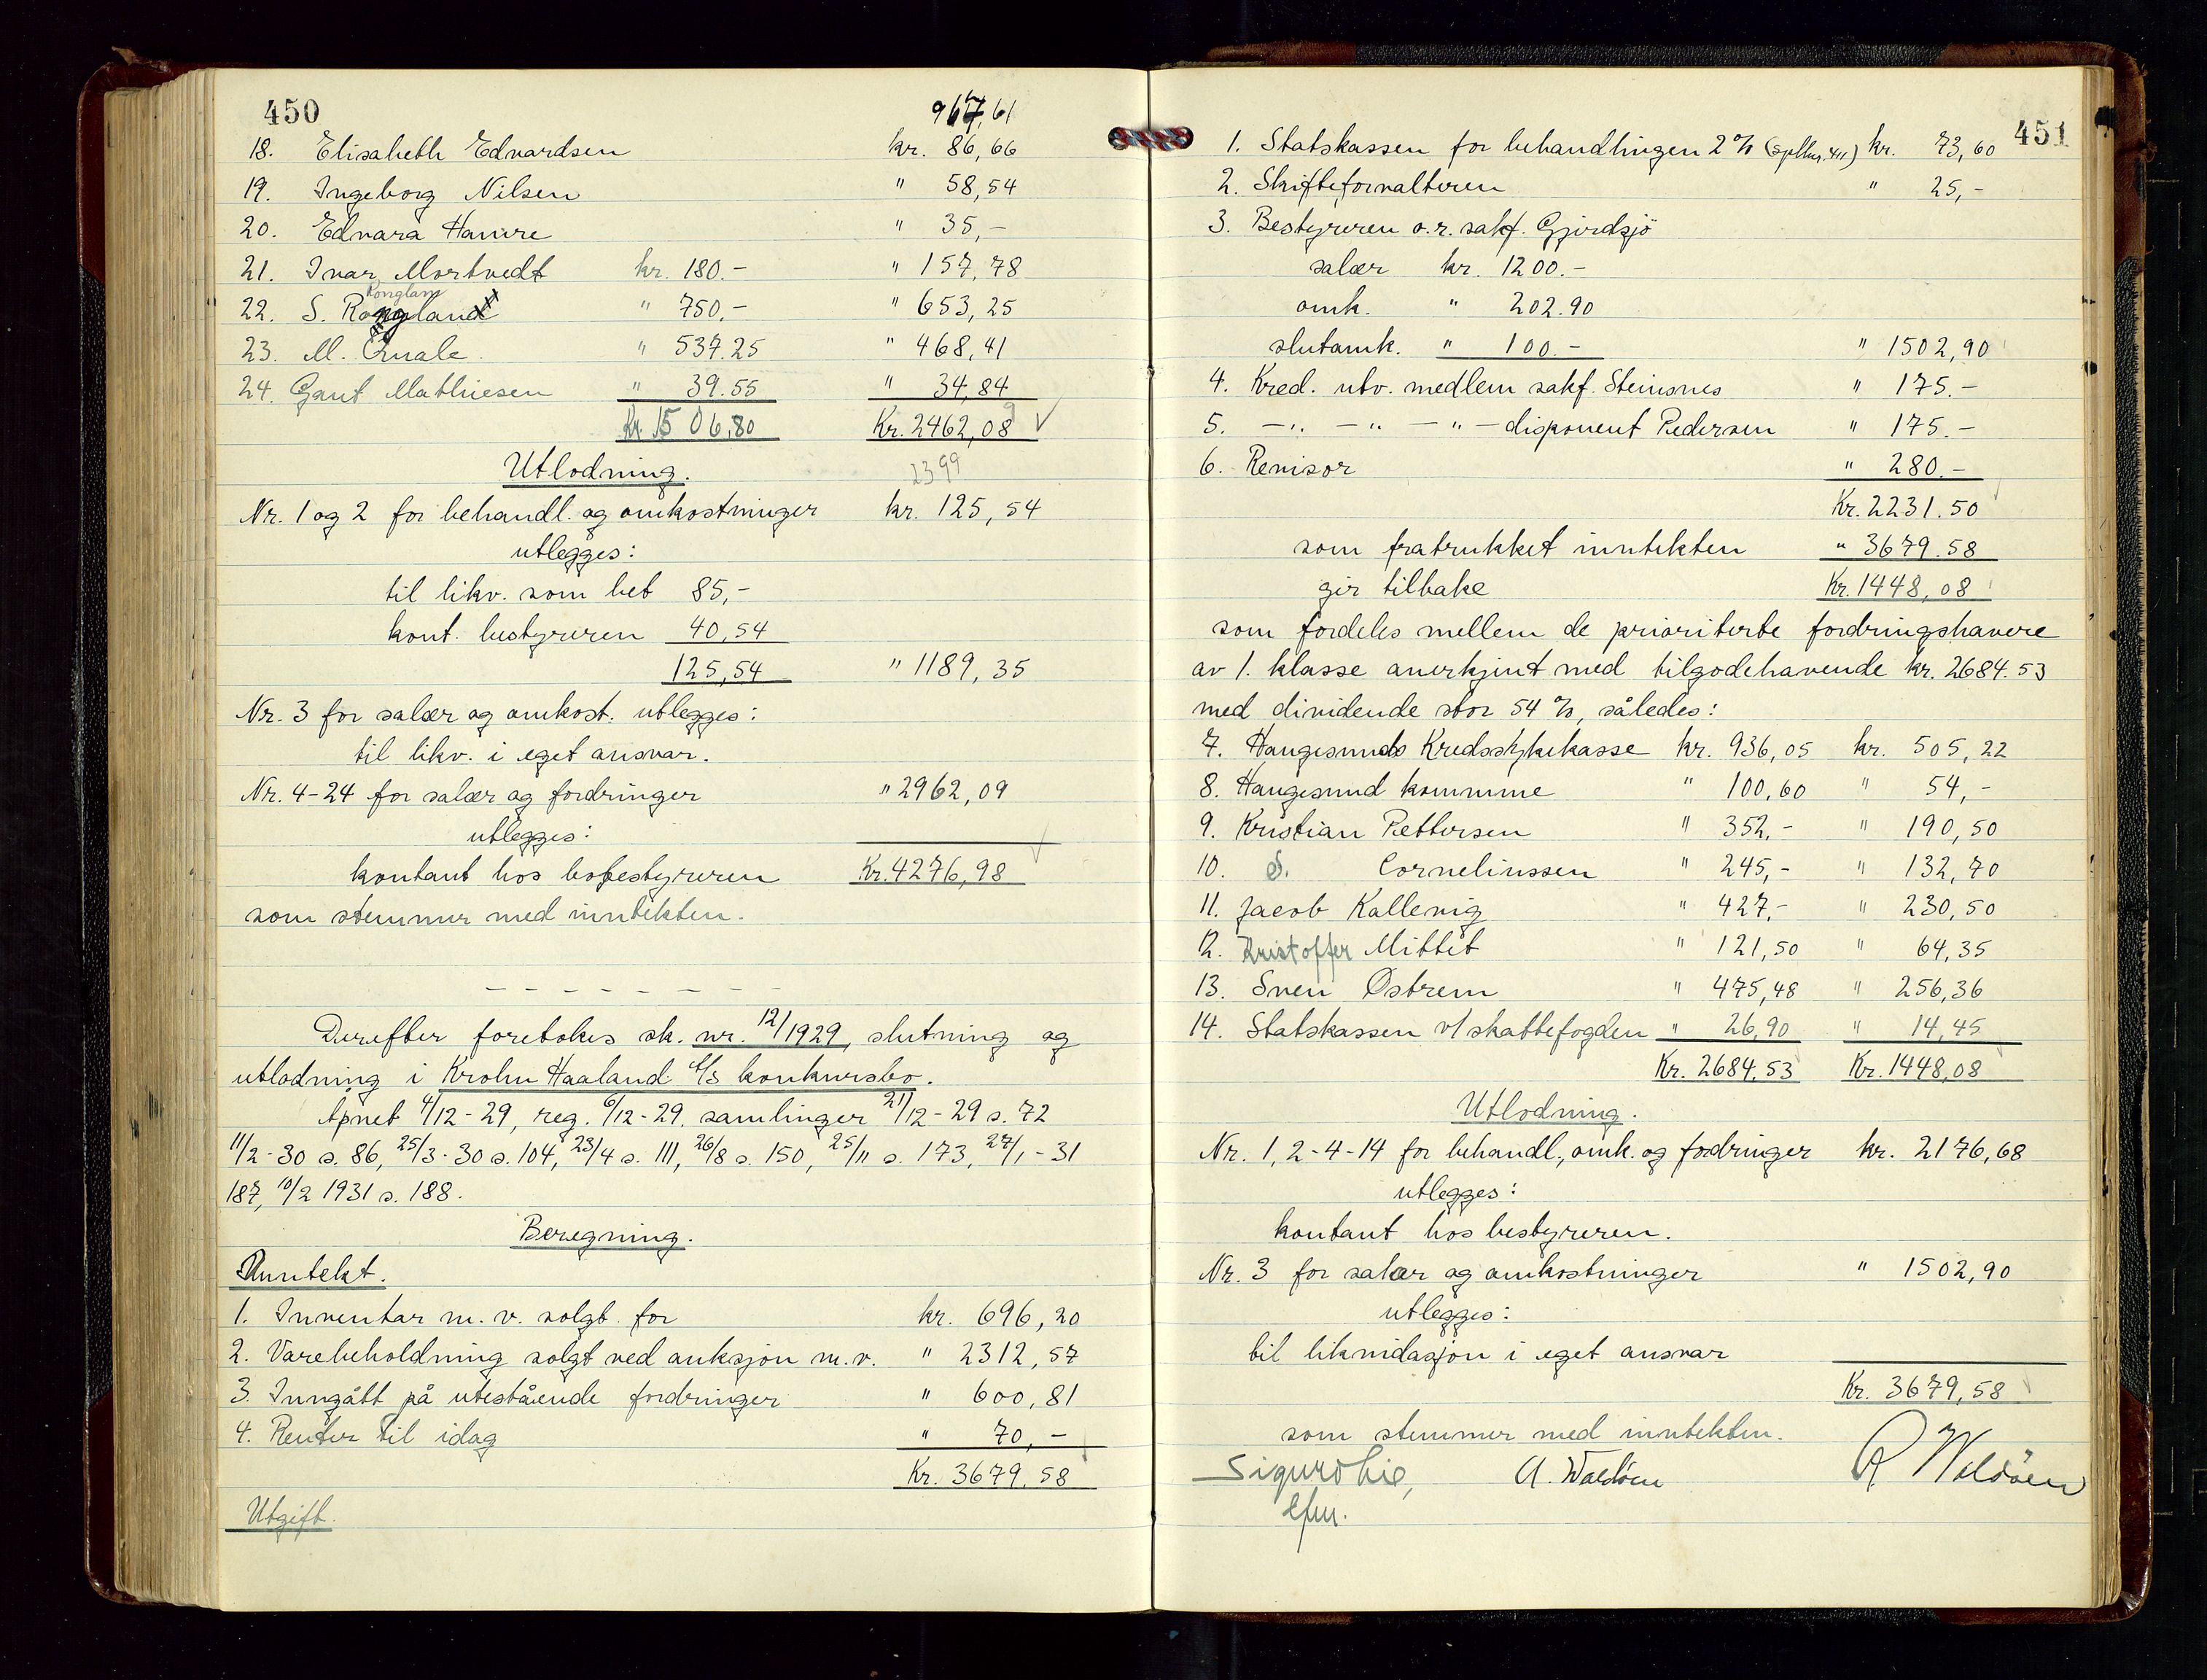 450
967,61
18. Elisabeth Edvardsen kr. 86,66
19. Ingeborg Nilsen " 58,54
20. Edvara Havre " 35,-
21. Ivar Mortvedt kr. 180.- " 157,78
Ronglan
22. S. Rongland " 750.- " 653,25
23. M. Quale " 537.25 " 468,41
24. Gaut Mathiesen " 39.55 " 34,84
Kr. 1506,80 Kr. 2462,08
Utlodning. 2399
Nr. 1 og 2 for behandl. og omkostninger kr. 125,54
utlegges:
til likv. som bet 85,-
kont. bestyreren 40,54
125,54 " 1189,35
Nr. 3 for salær og omkost. utlegges:
til likv. i eget ansvar.
Nr. 4-24 for salær og fordringer " 2962,09
utlegges:
kontant hos bobestyreren Kr. 4276,98
som stemmer med inntekten.
Derefter foretokes sk. nr. 12/1929, slutning og
utlodning i Krohn Haaland A/S konkursbo.
Åpnet 4/12-29, reg. 6/12-29. samlinger 21/12-29 s. 72
11/2-30 s. 86, 25/3-30 s. 104, 23/4 s. 111, 26/8 s. 150, 25/11 s. 173, 27/1-31
187, 10/2 1931 s. 188.
Beregning.
Inntekt.
1. Inventar m. v. solgt for kr. 696,20
2. Varebeholdning solgt ved auksjon m.v. " 2312,57
3. Inngått på utestående fordringer " 600,81
4. Renter til idag " 70,-
Kr. 3679,58
Utgift.
451
1. Statskassen for behandlingen 2% kr. 73,60
2. Skifteforvalteren " 25,-
3. Bestyreren o.r. sakf. Gjerdsjö
salær kr. 1200.-
omk. " 202.90
slutomk. " 100.- " 1502,90
4. Kred. utv. medlem sakf. Steinsnes " 175.-
5. -"- -"- -"- disponent Pedersen " 175.-
6. Revisor " 280.-
Kr. 2231.50
som fratrukket inntekten " 3679.58
gir tilbake Kr. 1448,08
som fordeles mellem de prioriterte fordringshavere
av 1. klasse anerkjent med tilgodehavende kr. 2684.53
med dividende stor 54 %, således:
7. Haugesunds Kredssykekasse kr. 936,05 kr. 505,22
8. Haugesund kommune " 100,60 " 54,-
9. Kristian Pettersen " 352,- " 190,50
10. S. Corneliussen " 245,- " 132,70
11. Jacob Kallevig " 427,- " 230,50
12. Kristoffer Mittet " 121,50 " 64,35
13. Sven Østrem " 475,48 " 256,36
14. Statskassen v/skattefogden " 26,90 " 14,45
Kr. 2684,53 Kr. 1448,08
Utlodning.
Nr. 1, 2-4-14 for behandl., omk. og fordringer kr. 2176,68
utlegges:
kontant hos bestyreren.
Nr. 3 for salær og omkostninger " 1502,90
utlegges:
til likvidasjon i eget ansvar
Kr. 3679,58
som stemmer med inntekten.